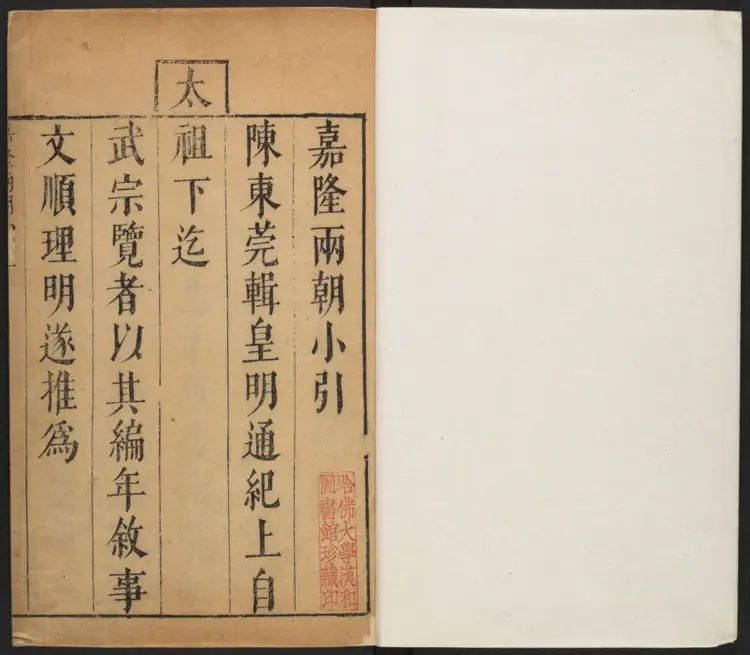 嘉隆兩朝小引
陳東莞輯皇明通紀上自
太祖下迄
武宗覽者以其編年敘事
文順理明遂推為
哈佛大學漢和
圖書館珍藏印